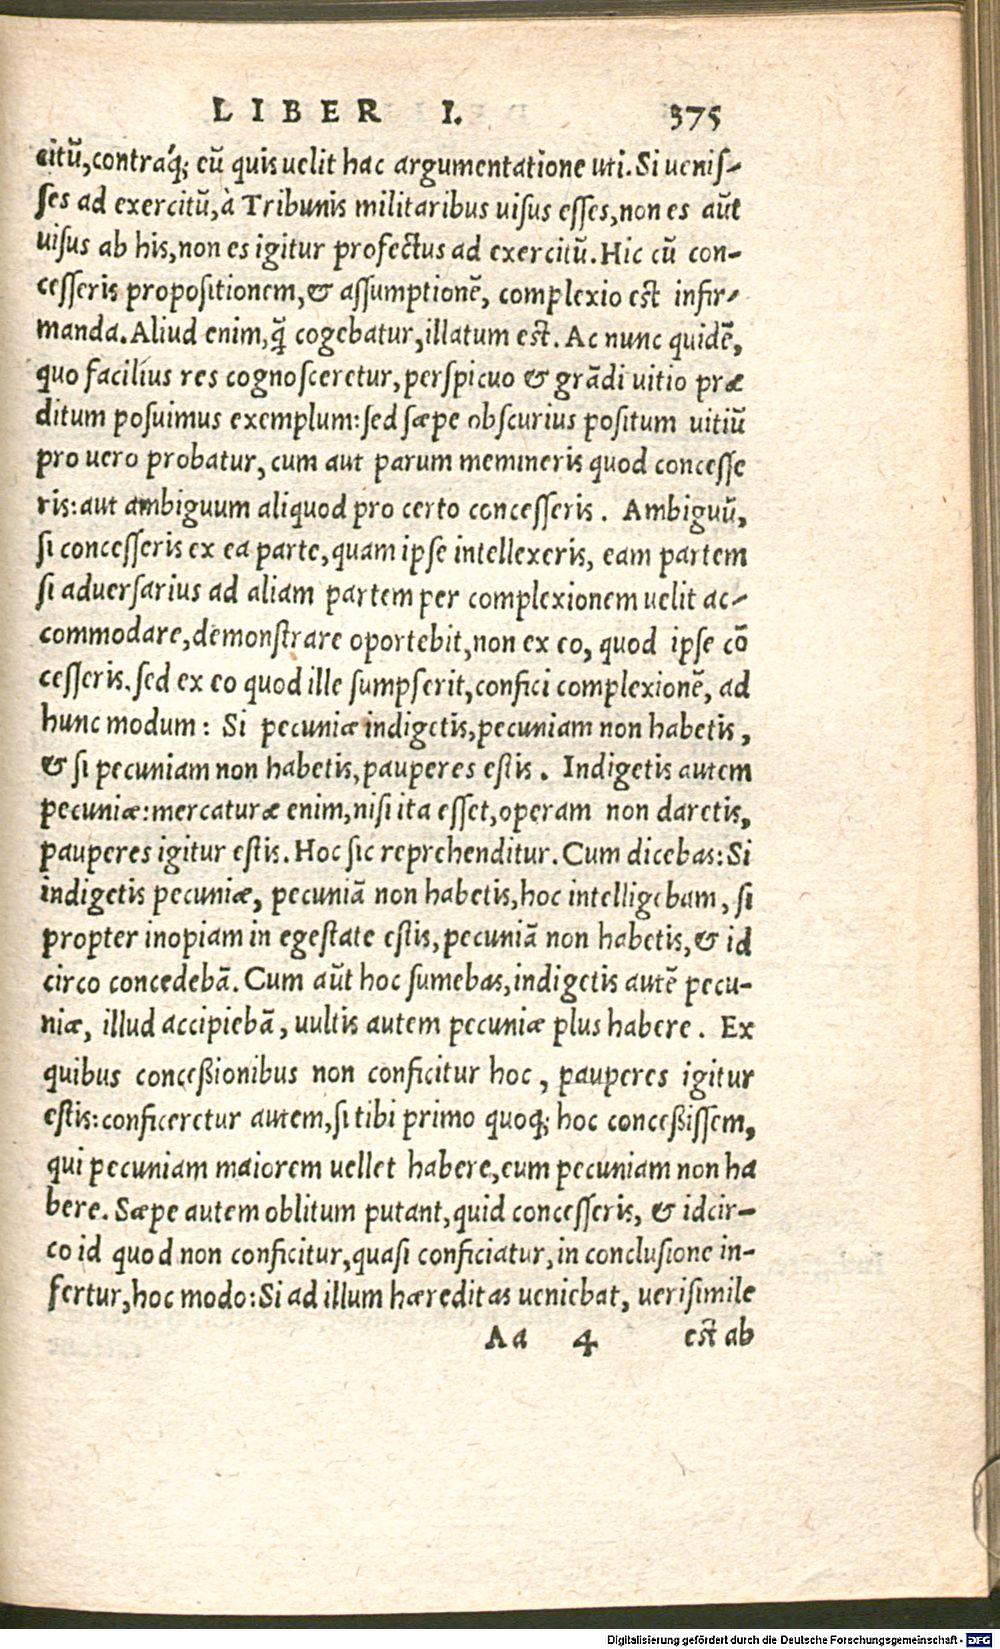 LIBER I. 375
citū, contraq́; cū quis uelit hac argumentatione uti. Si uenis-
ses ad exercitū, à Tribunis militaribus uisus esses, non es aūt
uisus ab his, non es igitur profectus ad exercitū. Hic cū con-
cesseris propositionem, & assumptionē, complexio est infir-
manda. Aliud enim, q̄ cogebatur, illatum est. Ac nunc quidē,
quo facilius res cognosceretur, perspicuo & grādi uitio præ
ditum posuimus exemplum: sed sæpe obscurius positum uitiū
pro uero probatur, cum aut parum memineris quod concesse
ris: aut ambiguum aliquod pro certo concesseris. Ambiguū,
si concesseris ex ea parte, quam ipse intellexeris, eam partem
si aduersarius ad aliam partem per complexionem uelit ac-
commodare, demonstrare oportebit, non ex eo, quod ipse cō
cesseris. sed ex eo quod ille sumpserit, confici complexionē, ad
hunc modum: Si pecuniæ indigetis, pecuniam non habetis,
& si pecuniam non habetis, pauperes estis. Indigetis autem
pecuniæ: mercaturæ enim, nisi ita esset, operam non daretis,
pauperes igitur estis. Hoc sic reprehenditur. Cum dicebas: Si
indigetis pecuniæ, pecuniā non habetis, hoc intelligebam, si
propter inopiam in egestate estis, pecuniā non habetis, & id
circo concedebā. Cum aūt hoc sumebas, indigetis autē pecu-
niæ, illud accipiebā, uultis autem pecuniæ plus habere. Ex
quibus conceßionibus non conficitur hoc, pauperes igitur
estis: conficeretur autem, si tibi primo quoq; hoc conceßissem,
qui pecuniam maiorem uellet habere, eum pecuniam non ha
bere. Sæpe autem oblitum putant, quid concesseris, & idcir-
co id quod non conficitur, quasi conficiatur, in conclusione in-
fertur, hoc modo: Si ad illum hæreditas ueniebat, uerisimile
Aa 4 est ab
Digitalisierung gefördert durch die Deutsche Forschungsgemeinschaft - DFG